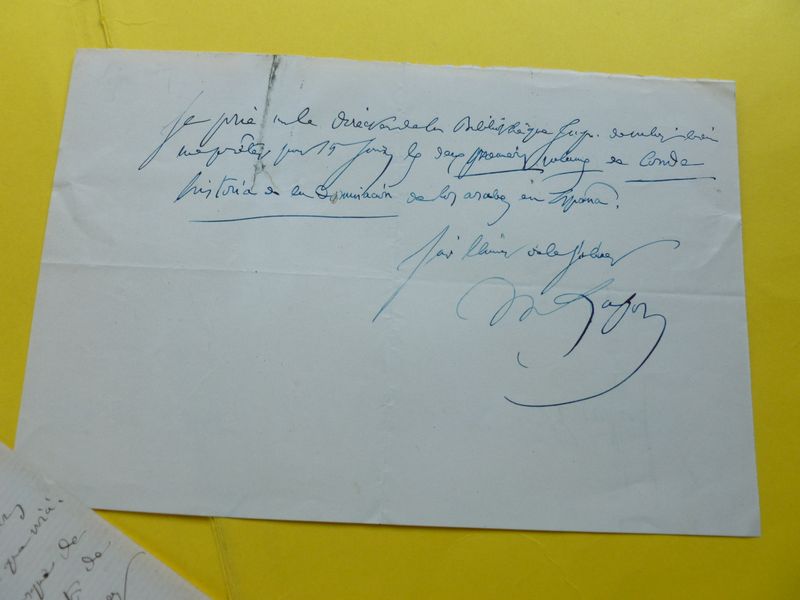 Je prie m. le Directeur de la Bibliothèque Imp. de vouloir bien
me prêter pour 15 jours les deux premiers volumes de Conde
historia de la Dominación de los arabes en España.
J'ai l'honneur de le saluer
que
de
de